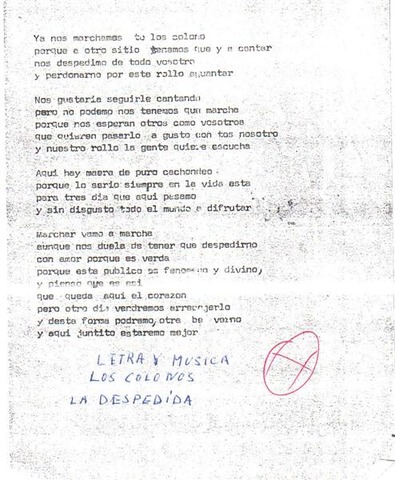 Ya nos marchamos to los colono
porque a otro sitio tenemos que y a cantar
nos despedimo de todo vosotro
y perdonarno por este rollo aguantar
Nos gustaria seguirle cantando
pero no podemo nos tenemos que marcha
porque nos esperan otros como vosotros
que quieren pasarlo a gusto con tos nosotro
y nuestro rollo la gente quiere escucha
Aqui hay maera de puro cachondeo
porque lo serio siempre en la vida esta
para tres dia que aqui pasamo
y sin disgusto todo el mundo a difrutar
Marchar vamo a marcha
aunque nos duela de tener que despedirno
con amor porque es verda
porque este publico es fenomeno y divino,
y pienso que es asi
que queda aqui el corazon
pero otro dia vendremos a
y desta forma podremo, otra
y aqui juntito estaremo mejor
LETRA Y MUSICA
LOS COLONOS
LA DESPEDIDA